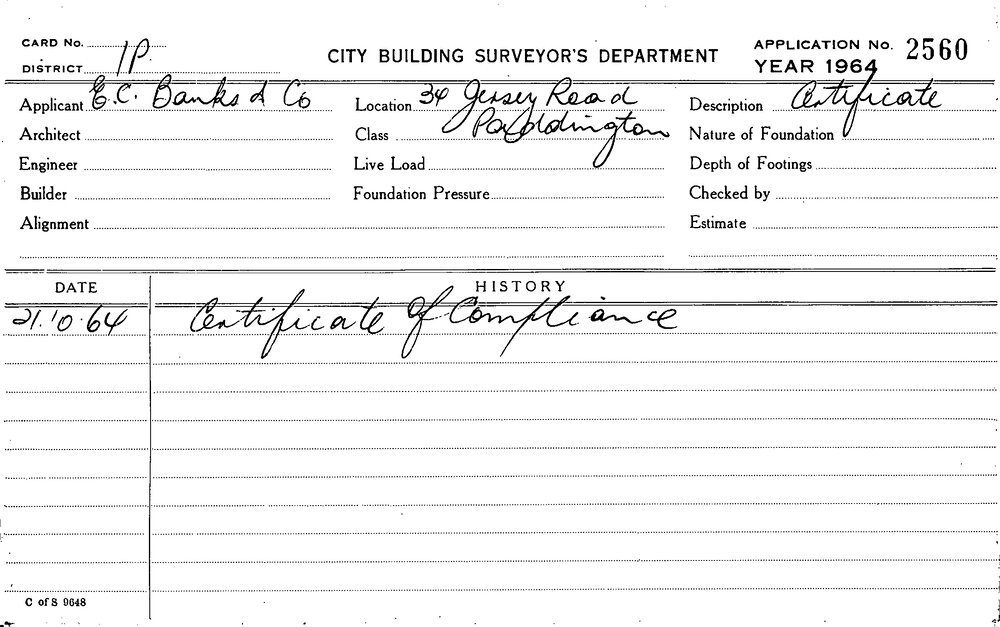 CARD No.
DISTRICT 1P
CITY BUILDING SURVEYOR'S DEPARTMENT
APPLICATION No. 2560
YEAR 1964
Applicant E.C. Banks & Co
Location 34 Jersey Road
Description Certificate
Architect
Class Paddington
Nature of Foundation
Engineer
Live Load
Depth of Footings
Builder
Foundation Pressure
Checked by
Alignment
Estimate
DATE
HISTORY
21.10.64 Certificate of Compliance
C of S 9648